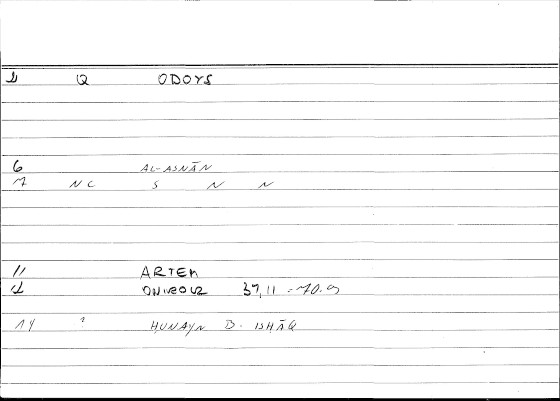 1 Q ODOYS
6 AL-ASNĀN
7 NC S N N
11 ARTEM
12 ONIROUR 37,11 = 70.9
14 ? HUNAYN B. ISHĀQ